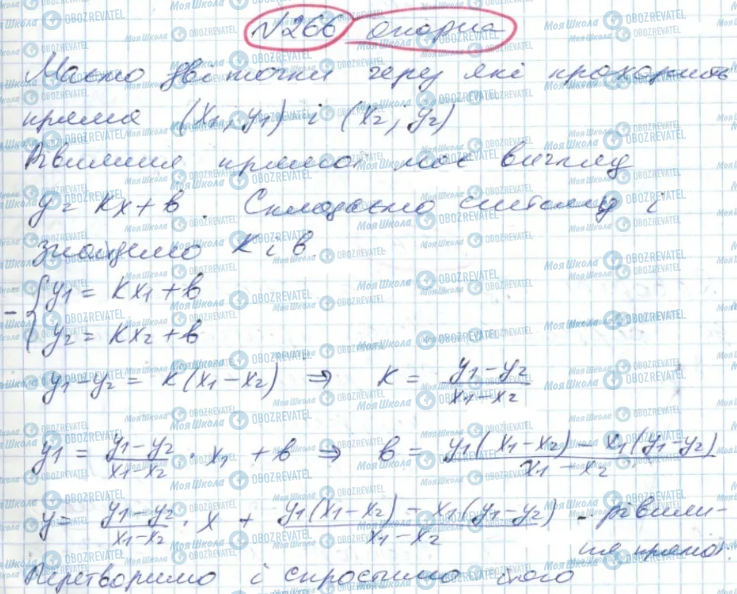 №266 опорна
Маємо дві точки через які проходить
пряма (x1; y1) і (x2; y2)
Рівняння прямої має вигляд
y = kx + b. Складаємо систему і
знайдемо k і b.
- { y1 = kx1 + b
y2 = kx2 + b
y1 - y2 = k(x1 - x2) ⇒ k = (y1 - y2)/(x1 - x2)
y1 = (y1 - y2)/(x1 - x2) · x1 + b ⇒ b = (y1(x1 - x2) - x1(y1 - y2))/(x1 - x2)
y = (y1 - y2)/(x1 - x2) · x + (y1(x1 - x2) - x1(y1 - y2))/(x1 - x2) - рівнян-
ня прямої.
Перетворимо і спростимо його
Моя Школа OBOZREVATEL